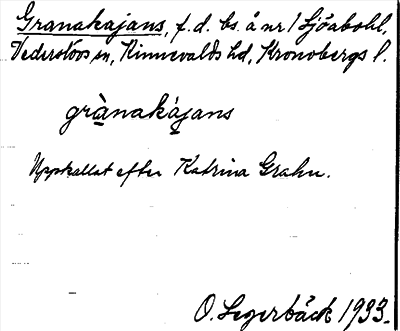 Granakajans, f.d. bs. å nr 1 Sjöabohl,
Vederslövs sn, Kinnevalds hd, Kronobergs l.
grànakájans
Uppkallat efter Katrina Grahn.
O. Segerbäck 1933.